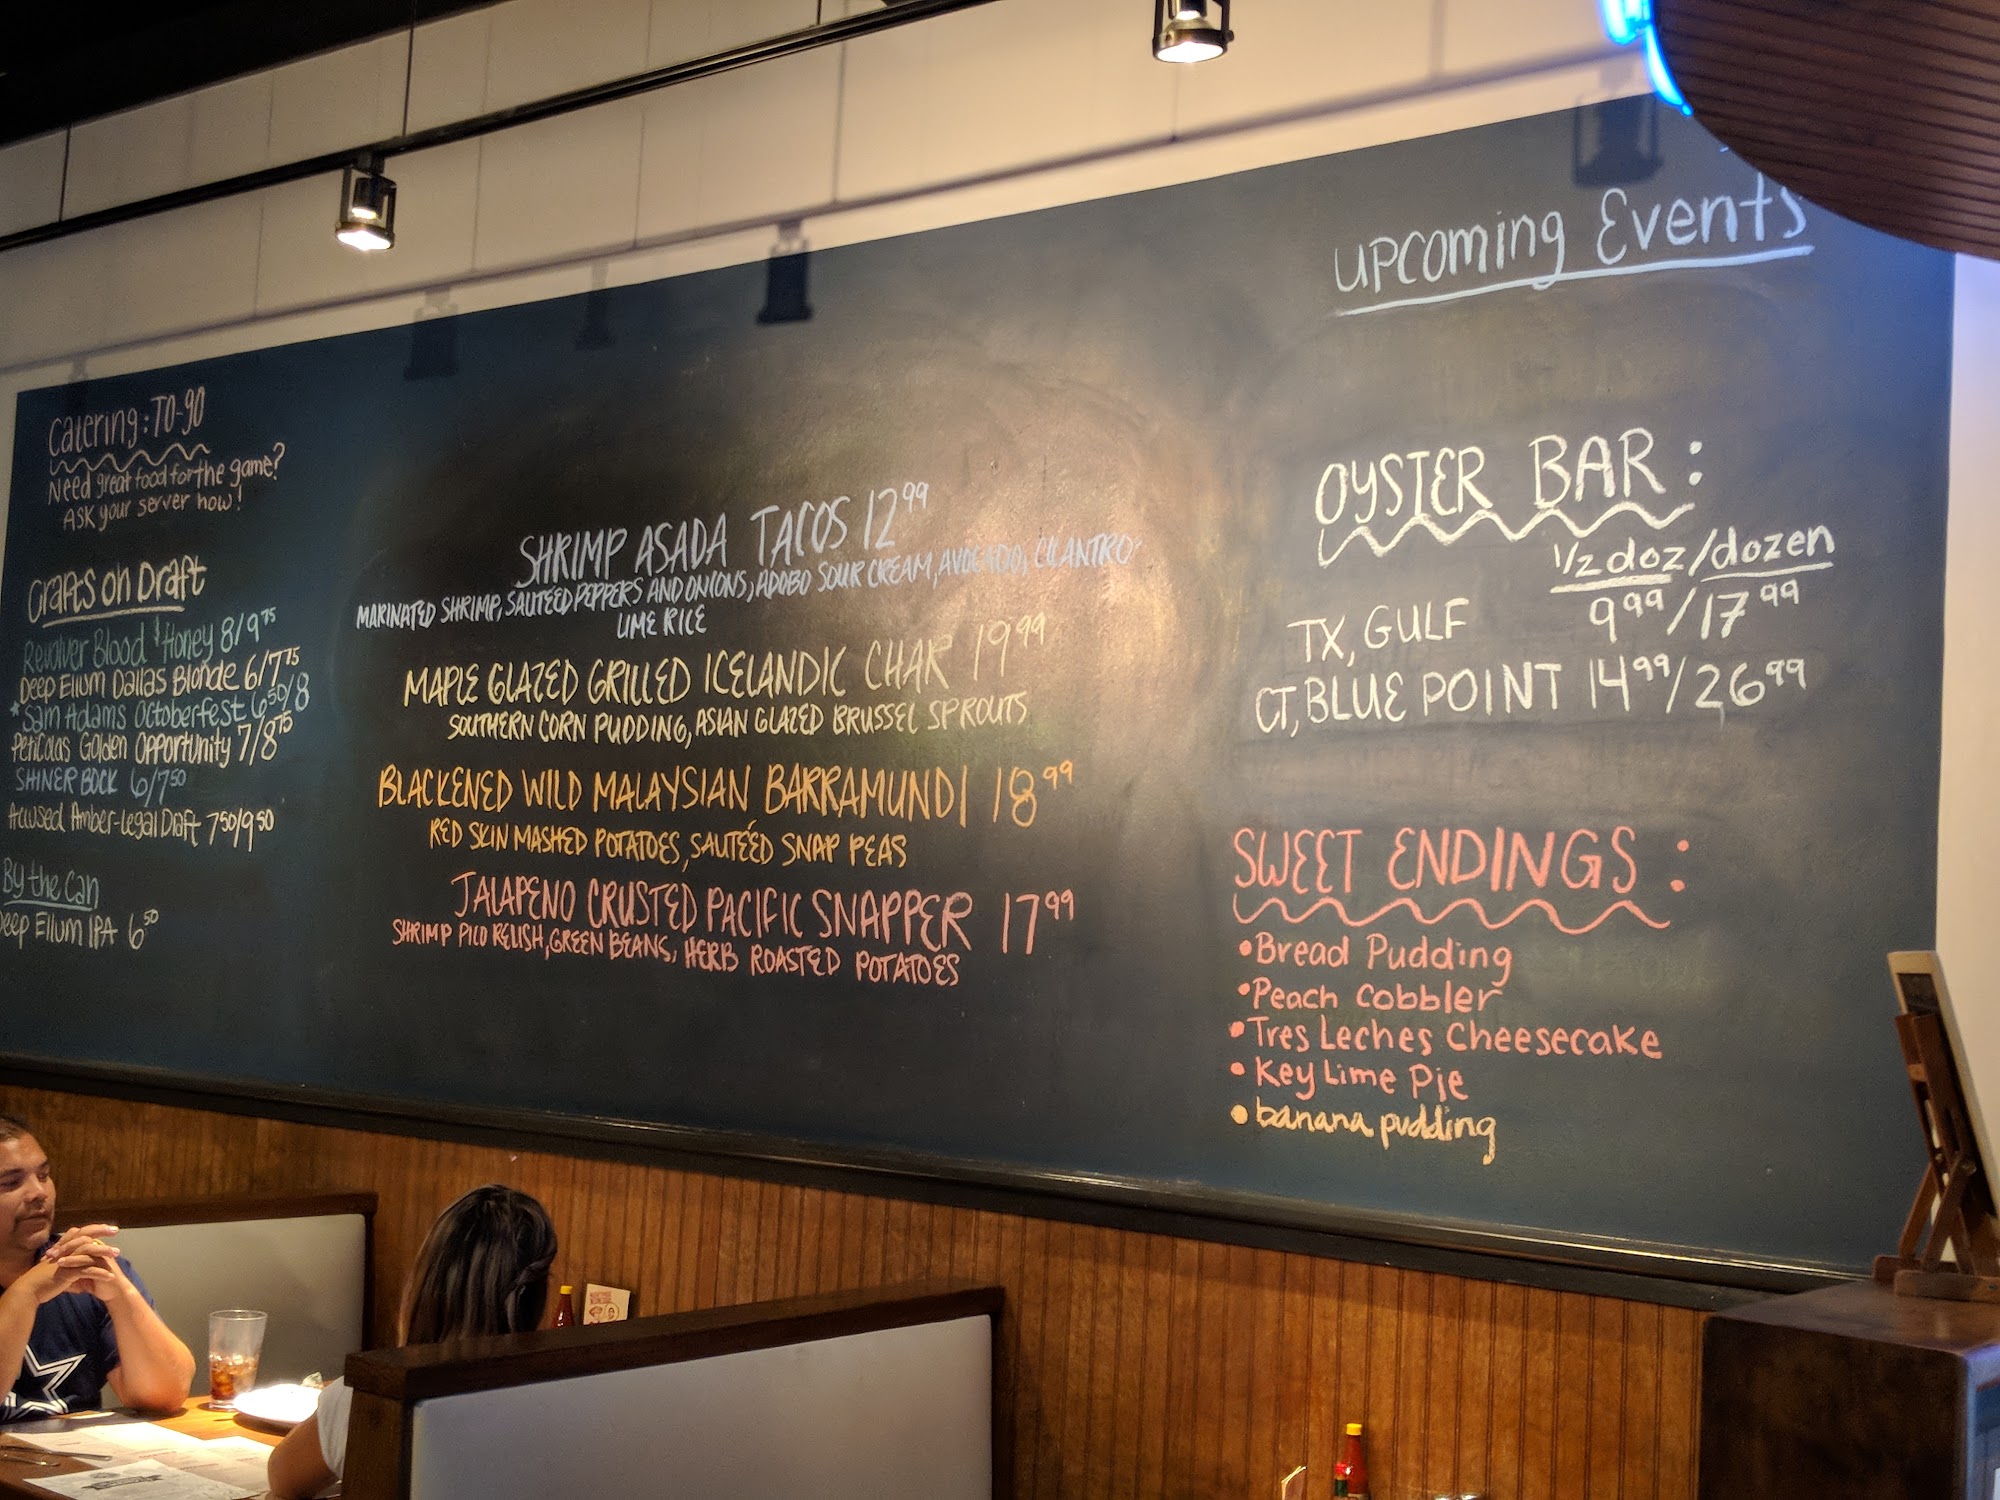 Catering: TO-GO
Need great food for the game?
ASK your server now!
Crafts on Draft
Revolver Blood & Honey 8/9.75
Deep Ellum Dallas Blonde 6/7.75
*Sam Adams Octoberfest 6.50/8
Peticolas Golden Opportunity 7/8.75
SHINER BOCK 6/7.50
Accused Amber-Legal Draft 7.50/9.50
By the Can
Deep Ellum IPA 6.50
SHRIMP ASADA TACOS 12.99
MARINATED SHRIMP, SAUTEED PEPPERS AND ONIONS, ADOBO SOUR CREAM, AVOCADO, CILANTRO-
LIME RICE
MAPLE GLAZED GRILLED ICELANDIC CHAR 19.99
SOUTHERN CORN PUDDING, ASIAN GLAZED BRUSSEL SPROUTS
BLACKENED WILD MALAYSIAN BARRAMUNDI 18.99
RED SKIN MASHED POTATOES, SAUTÉED SNAP PEAS
JALAPENO CRUSTED PACIFIC SNAPPER 17.99
SHRIMP PICO RELISH, GREEN BEANS, HERB ROASTED POTATOES
Upcoming Events
OYSTER BAR:
1/2 doz/dozen
TX, GULF 9.99/17.99
CT, BLUE POINT 14.99/26.99
SWEET ENDINGS:
• Bread Pudding
• Peach Cobbler
• Tres Leches Cheesecake
• Key Lime Pie
• banana pudding